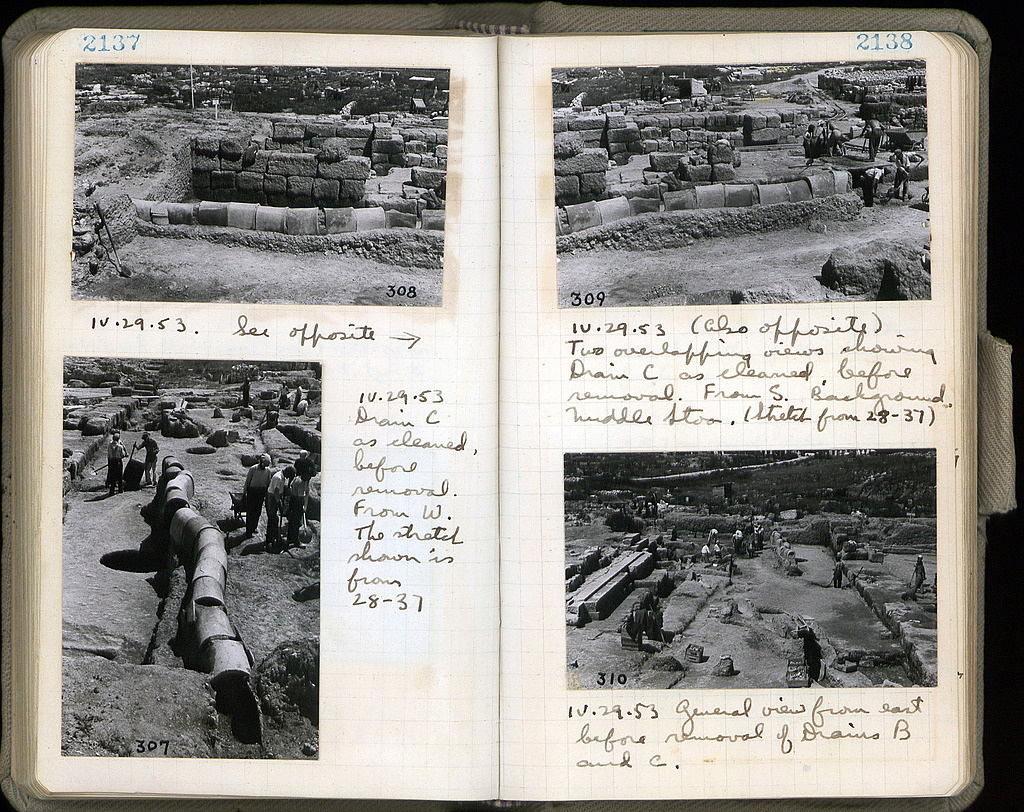 2137
308
IV.29.53. See opposite →
307
IV.29.53
Drain C
as cleaned,
before
removal.
From W.
The stretch
shown is
from
28-37
2138
309
IV.29.53 (Also opposite)
Two overlapping views showing
Drain C as cleaned, before
removal. From S. Background,
Middle Stoa. (Stretch from 28-37)
310
IV.29.53 General view from east
before removal of Drains B
and C.